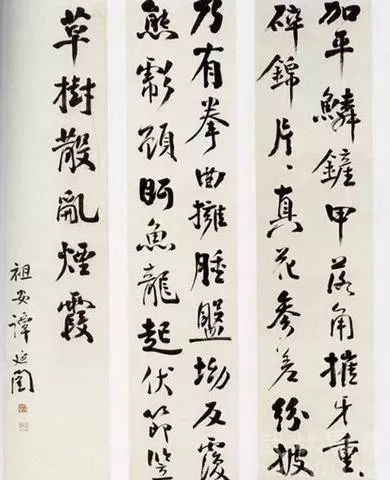 加平鱗鏟甲落角摧牙重、
碎錦片、真花參差紛披
乃有拳曲擁腫盤坳反覆
熊彪顧盻魚龍起伏節竪
草樹散亂煙霞
祖安譚延闓